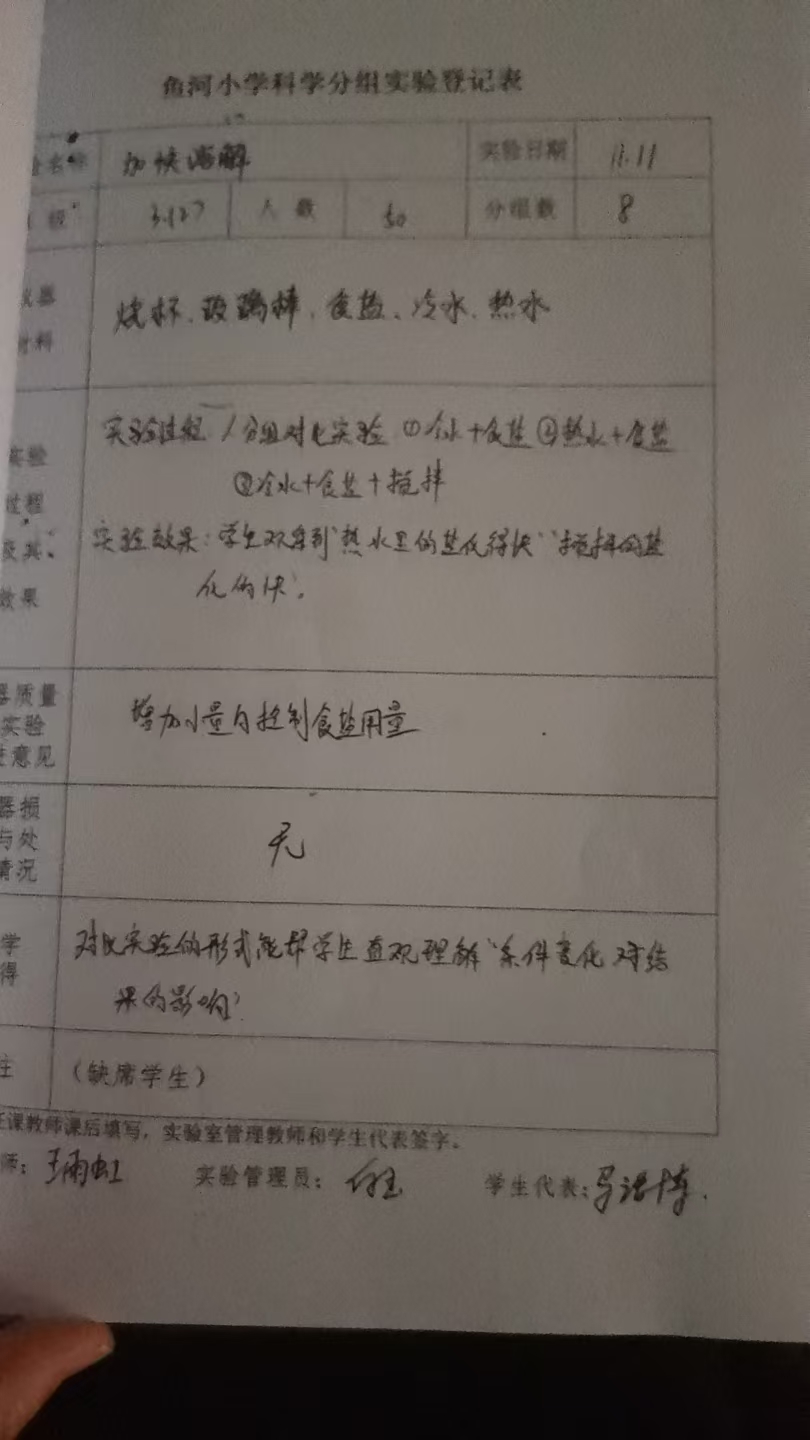 鱼河小学科学分组实验登记表
名称 加快溶解 实验日期 11.11
级 人数 50 分组数 8
仪器 材料 烧杯、玻璃棒、食盐、冷水、热水
实验 实验过程 分组对比实验 ①冷水+食盐 ②热水+食盐
过程 ③冷水+食盐+搅拌
及其、 实验效果：学生观察到“热水里的盐化得快”“搅拌的盐
效果 化的快”。
器质量
实验 增加小量勺控制食盐用量
意见
器损
与处 无
情况
学 对比实验的形式能帮学生直观理解“条件变化对结
得 果的影响”
注 （缺席学生）
任课教师课后填写，实验室管理教师和学生代表签字。
师： 实验管理员： 学生代表：